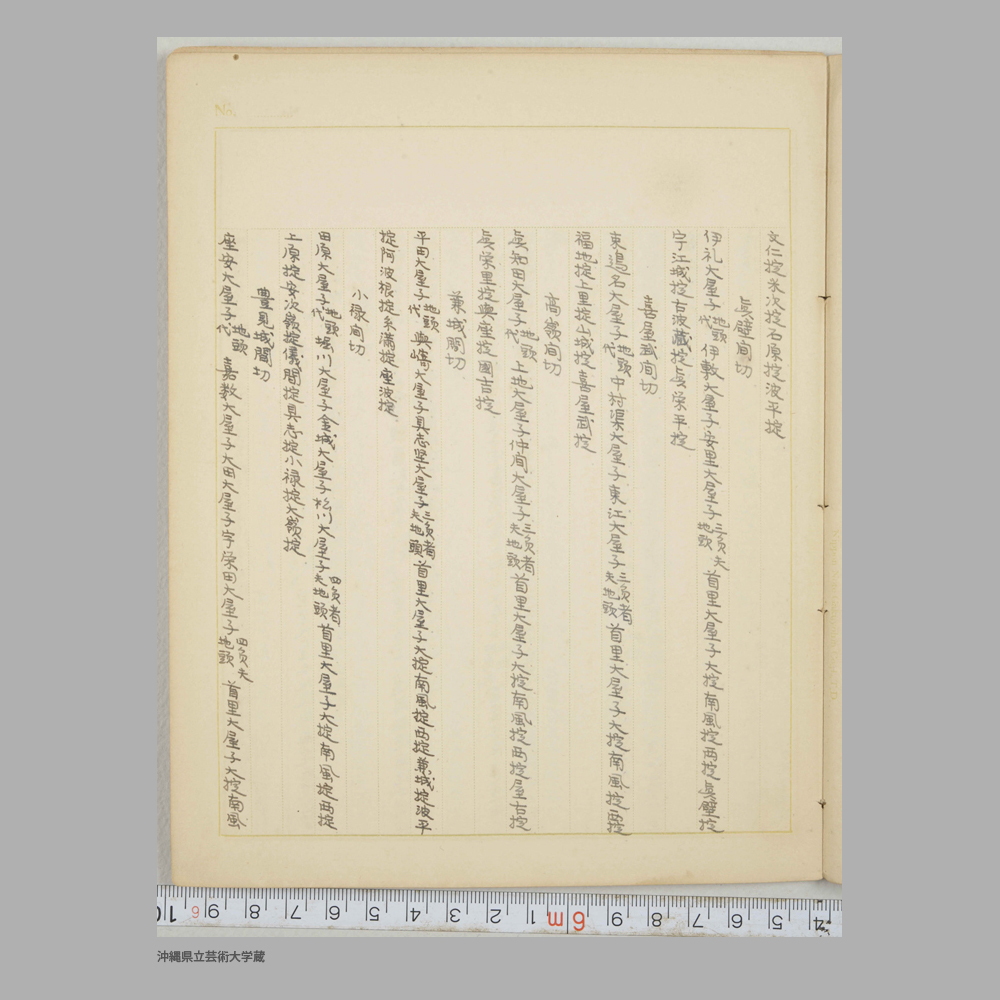 文仁掟米次掟石原掟波平掟
眞壁間切
伊礼大屋子地頭代伊敷大屋子安里大屋子三員夫地頭 首里大屋子大掟南風掟西掟眞壁掟
宇江城掟古波蔵掟眞栄平掟
喜屋武間切
東邊名大屋子地頭代中村渠大屋子東江大屋子三員者夫地頭首里大屋子大掟南風掟西掟
福地掟上里掟山城掟喜屋武掟
高嶺間切
眞知田大屋子地頭代上地大屋子仲間大屋子三員者夫地頭首里大屋子大掟南風掟西掟屋古掟
眞栄里掟與座掟國吉掟
兼城間切
平田大屋子地頭代與崎大屋子真志堅大屋子三員者夫地頭首里大屋子大掟南風掟西掟兼城掟波平
掟阿波根掟糸満掟座波掟
小禄間切
田原大屋子地頭代堀川大屋子金城大屋子松川大屋子四員者夫地頭首里大屋子大掟南風掟西掟
上原掟安次嶺掟儀間掟具志掟小禄掟大嶺掟
豊見城間切
座安大屋子地頭代 嘉数大屋子大田大屋子宇栄田大屋子四員夫地頭 首里大屋子大掟南風
No.
10 6 9 8 7 6 5 4 3 2 1 6m 9 8 7 6 5 4
沖縄県立芸術大学蔵